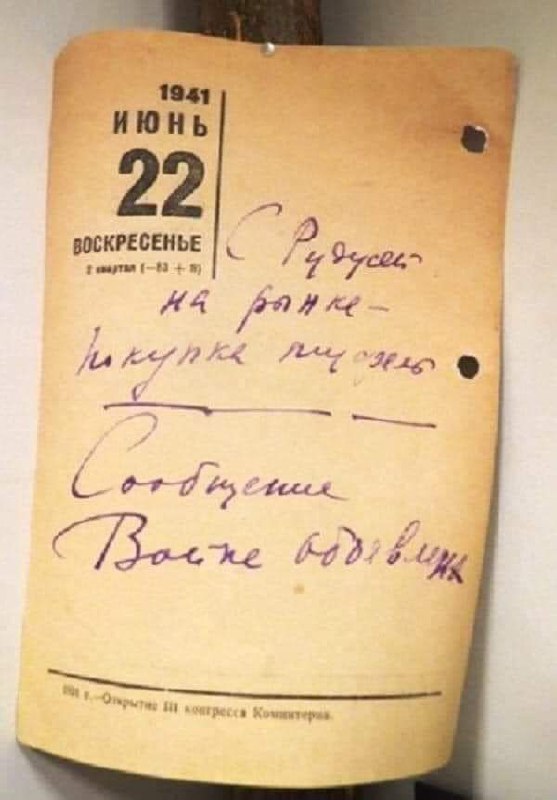 1941
ИЮНЬ
22
ВОСКРЕСЕНЬЕ
2 квартал (—83 + 8)
С
на рынке —
покупка
Сообщение
Война объявлена
г.—Открытие III конгресса Коминтерна.